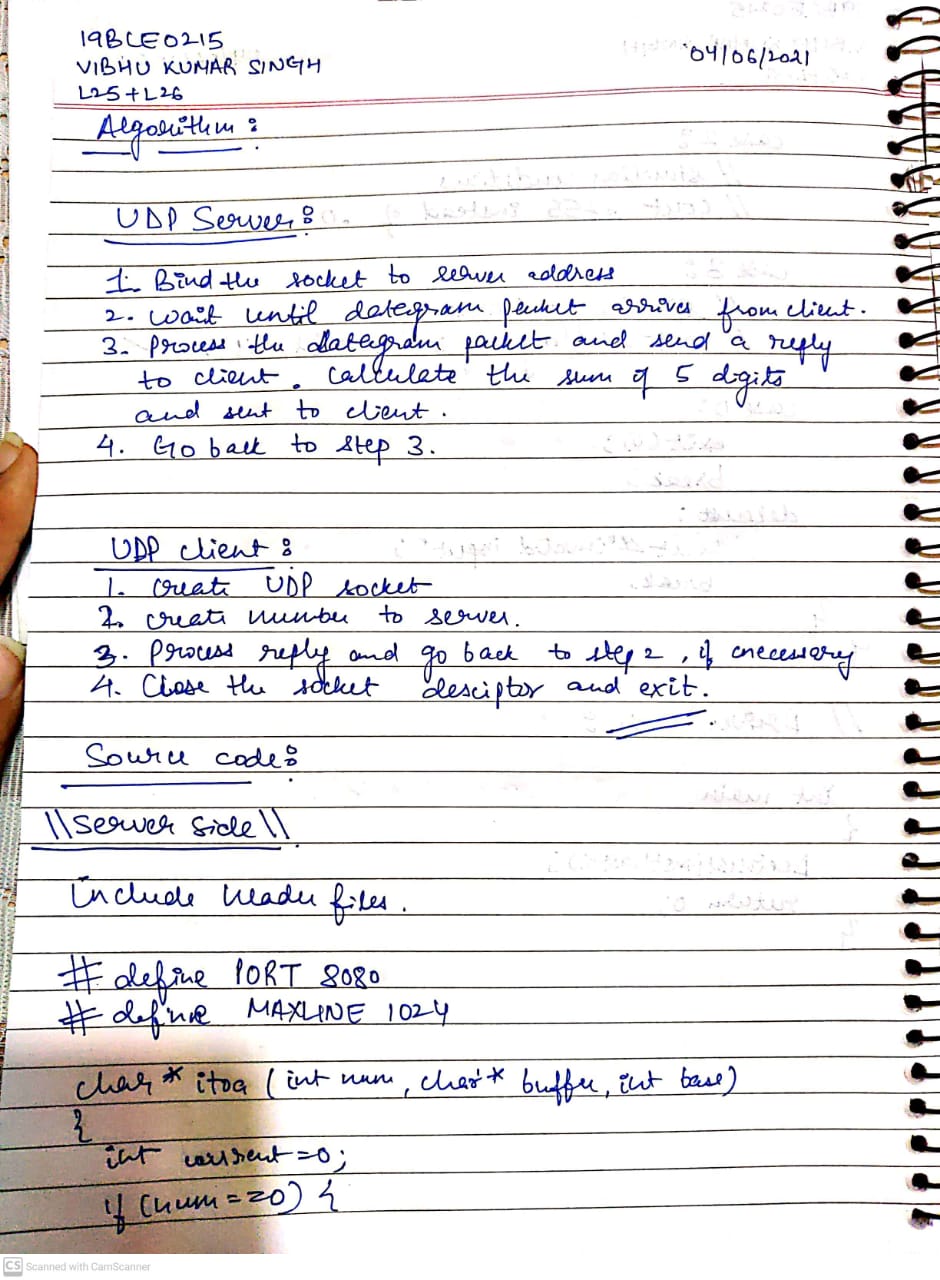 19BCE0215
VIBHU KUMAR SINGH
L25+L26
04/06/2021
Algorithm :
UDP Server :
1. Bind the socket to server address
2. wait until datagram packet arrives from client.
3. Process the datagram packet and send a reply
to client. Calculate the sum of 5 digits
and sent to client.
4. Go back to step 3.
UDP client :
1. Create UDP socket
2. create number to server.
3. Process reply and go back to step 2, if necessary
4. Close the socket desciptor and exit.
Source code :
\\server side\\
Include header files.
# define PORT 8080
# define MAXLINE 1024
char * itoa (int num, char* buffer, int base)
{
int current=0;
if (num==0) {
CS Scanned with CamScanner